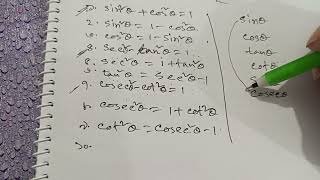 1. sin²θ + cos²θ = 1
2. sin²θ = 1 - cos²θ
cos²θ = 1 - sin²θ
sec²θ - tan²θ = 1
8. sec²θ = 1 + tan²θ
5. tan²θ = sec²θ - 1
9. cosec²θ - cot²θ = 1
cosec²θ = 1 + cot²θ
cot²θ = cosec²θ - 1
sinθ
cosθ
tanθ
cotθ
cosecθ